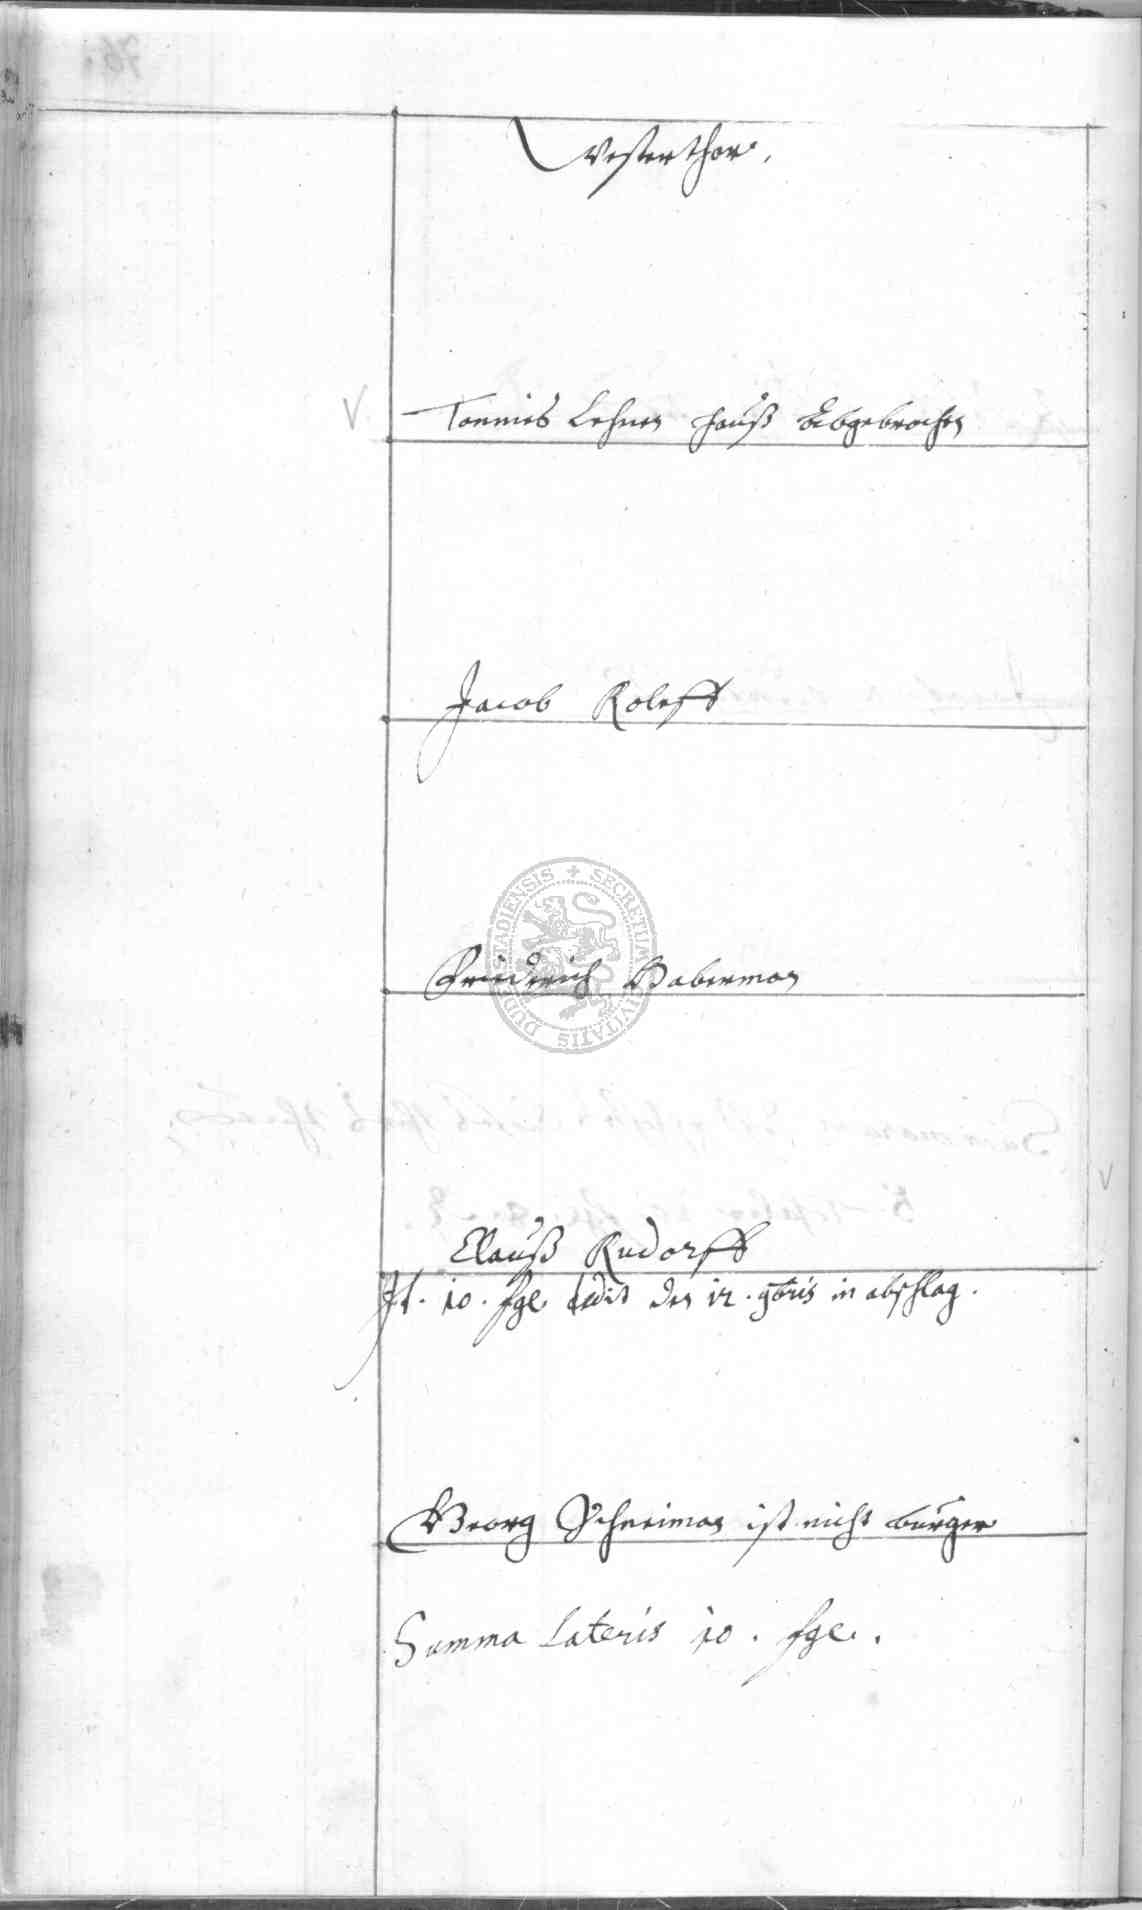 Westerthor.
Tonnies Lehnen hauß Abgebrochen
Jacob Roleff
Friederich Haberman
Clauß Rudorff
It. 10. fgl. dedit den 12. 9bris in abschlag.
Georg Schneiman ist nicht bürger
Summa Lateris 10. fgl.
SECRETUM CIVITATIS DUDERSTADIENSIS